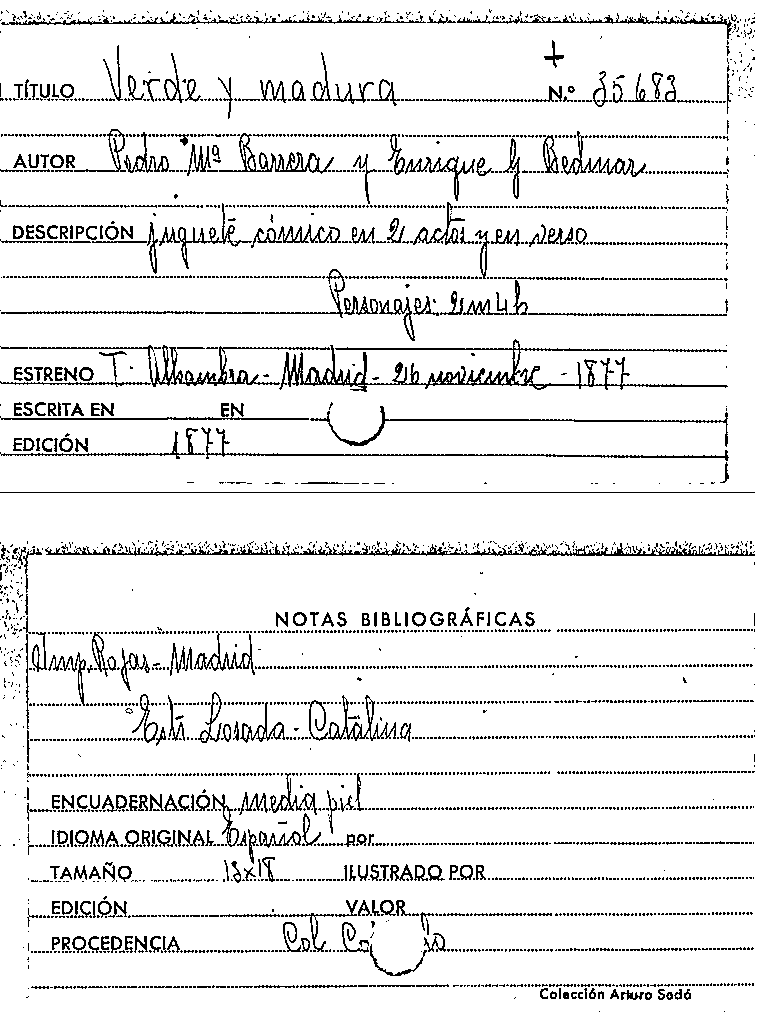 +
TÍTULO Verde y madura N.º 35683
AUTOR Pedro Mª Barrera y Enrique G Bedmar
DESCRIPCIÓN juguete cómico en 2 actos y en verso
Personajes: 2 m 4 h
ESTRENO T. Alhambra - Madrid - 26 noviembre - 1877
ESCRITA EN EN
EDICIÓN 1877
NOTAS BIBLIOGRÁFICAS
Imp. Rojas - Madrid
Estr. Losada - Catalina
ENCUADERNACIÓN media piel
IDIOMA ORIGINAL Español por
TAMAÑO 13x18 ILUSTRADO POR
EDICIÓN VALOR
PROCEDENCIA Col.
Colección Arturo Sedó